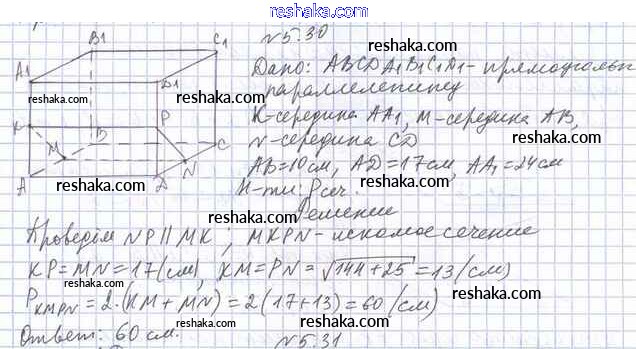 reshaka.com
№5.30
B1
C1
Дано: ABCDA1B1C1D1 - прямоугольн
A1
D1
параллелепипед
K
P
K-середина AA1, M-середина AB,
M
B
N-середина CD
C
AB=10см, AD=17см, AA1=24см
A
D
N
Н-ти: Pсеч.
Решение
Проведём NP || MK; MKPN-искомое сечение
KP=MN=17(см), KM=PN=√144+25=13(см)
PKMPN=2·(KM+MN)=2(17+13)=60(см)
Ответ: 60 см.
№5.31
reshaka.com
reshaka.com
reshaka.com
reshaka.com
reshaka.com
reshaka.com
reshaka.com
reshaka.com
reshaka.com
reshaka.com
reshaka.com
reshaka.com